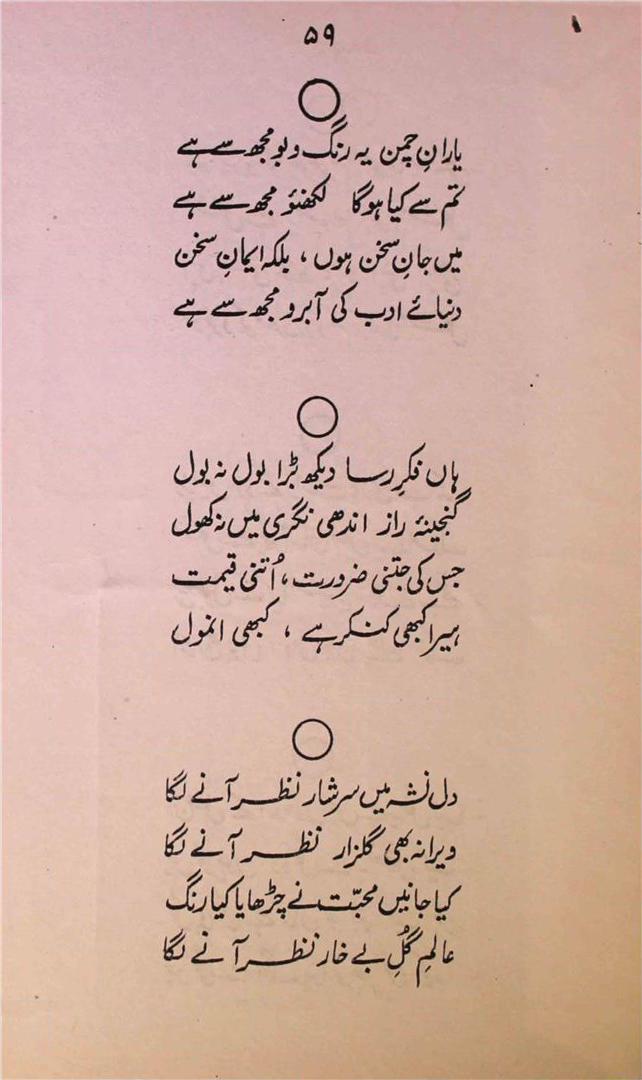 ۵۹
یارانِ چمن یہ رنگ و بو مجھ سے ہے
تم سے کیا ہوگا لکھنؤ مجھ سے ہے
میں جانِ سخن ہوں ، بلکہ ایمانِ سخن
دنیائے ادب کی آبرو مجھ سے ہے
ہاں فکرِ رسا دیکھ بڑا بول نہ بول
گنجینۂ راز اندھی نگری میں نہ کھول
جس کی جتنی ضرورت ، اُتنی قیمت
ہیرا کبھی کنکر ہے ، کبھی انمول
دل نشہ میں سرشار نظر آنے لگا
ویرانہ بھی گلزار نظر آنے لگا
کیا جانیں محبّت نے چڑھایا کیا رنگ
عالمِ گُلِ بے خار نظر آنے لگا